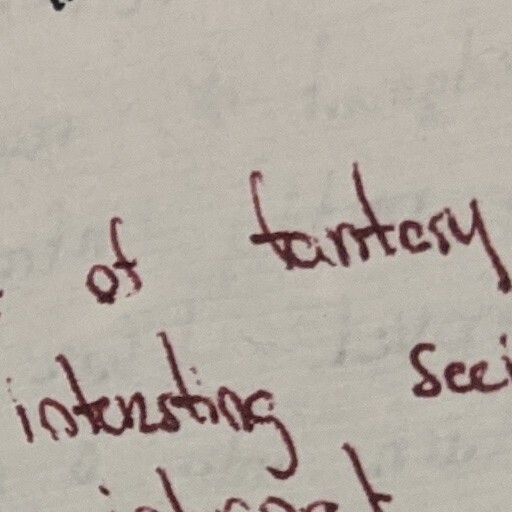 of fantasy
intersting seei